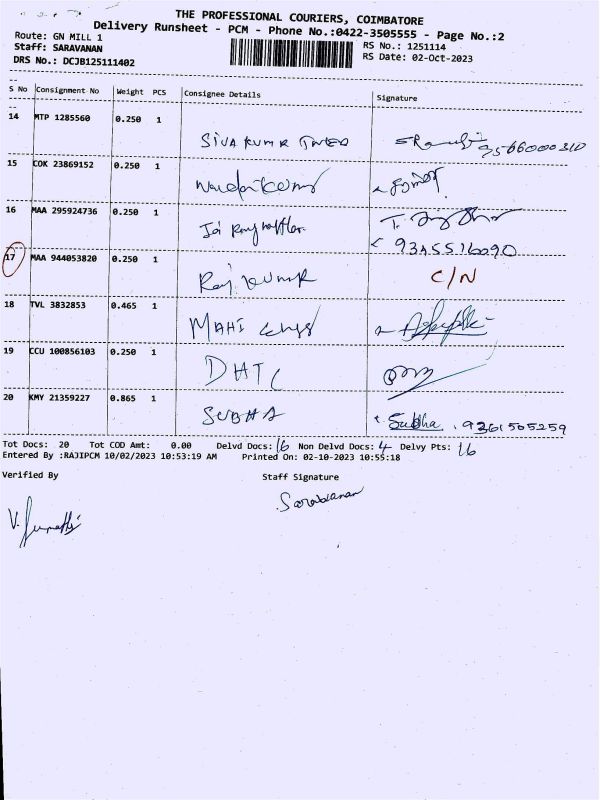 THE PROFESSIONAL COURIERS, COIMBATORE
Delivery Runsheet - PCM - Phone No.:0422-3505555 - Page No.:2
Route: GN MILL 1
Staff: SARAVANAN
DRS No.: DCJB125111402
RS No.: 1251114
RS Date: 02-Oct-2023
S No Consignment No Weight PCS Consignee Details Signature
14 MTP 1285560 0.250 1 SIVA KUMR
15 COK 23869152 0.250 1
16 MAA 295924736 0.250 1 Jai
9345516090
17 MAA 944053820 0.250 1 Raj KUMR C/N
18 TVL 3832853 0.465 1 MAHI
19 CCU 100856103 0.250 1 DHTC
20 KMY 21359227 0.865 1 SUBHA Subha. 9361505259
Tot Docs: 20 Tot COD Amt: 0.00 Delvd Docs: 16 Non Delvd Docs: 4 Delvy Pts: 16
Entered By :RAJIPCM 10/02/2023 10:53:19 AM Printed On: 02-10-2023 10:55:18
Verified By Staff Signature
Saravanan